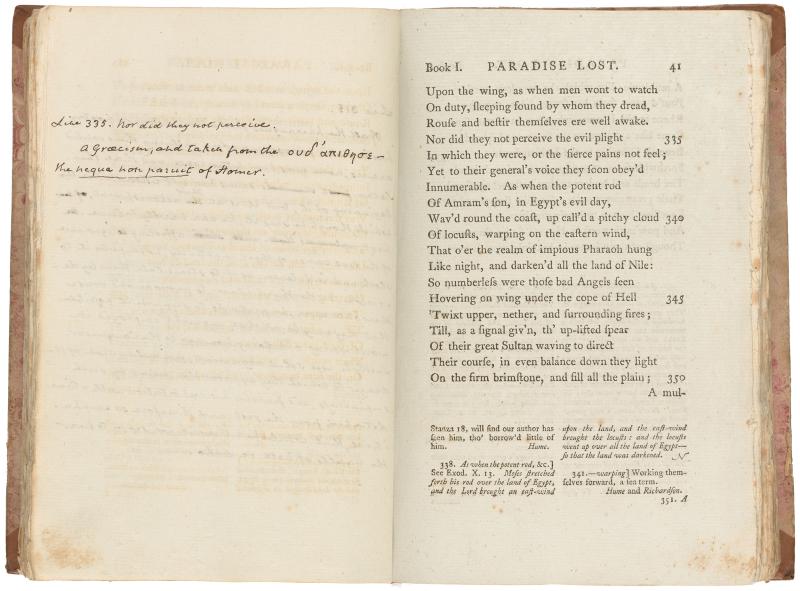 Line 335. Nor did they not perceive.
a græcism, and taken from the ουδ' ἀπιθησε –
the neque non paruit of Homer.
Book I. PARADISE LOST. 41
Upon the wing, as when men wont to watch
On duty, ſleeping found by whom they dread,
Rouſe and beſtir themſelves ere well awake.
Nor did they not perceive the evil plight 335
In which they were, or the fierce pains not feel;
Yet to their general's voice they ſoon obey'd
Innumerable. As when the potent rod
Of Amram's ſon, in Egypt's evil day,
Wav'd round the coaſt, up call'd a pitchy cloud 340
Of locuſts, warping on the eaſtern wind,
That o'er the realm of impious Pharaoh hung
Like night, and darken'd all the land of Nile:
So numberleſs were thoſe bad Angels ſeen
Hovering on wing under the cope of Hell 345
'Twixt upper, nether, and ſurrounding fires;
Till, as a ſignal giv'n, th' up-lifted ſpear
Of their great Sultan waving to direct
Their courſe, in even balance down they light
On the firm brimſtone, and fill all the plain; 350
A mul-
Stanza 18, will find our author has
ſeen him, tho' borrow'd little of
him. Hume.
338. As when the potent rod, &c.]
See Exod. X. 13. Moſes ſtretched
forth his rod over the land of Egypt,
and the Lord brought an eaſt-wind
upon the land, and the eaſt-wind
brought the locuſts: and the locuſts
went up over all the land of Egypt—
ſo that the land was darkened. N
341.—warping] Working them-
ſelves forward, a ſea term.
Hume and Richardſon.
351. A